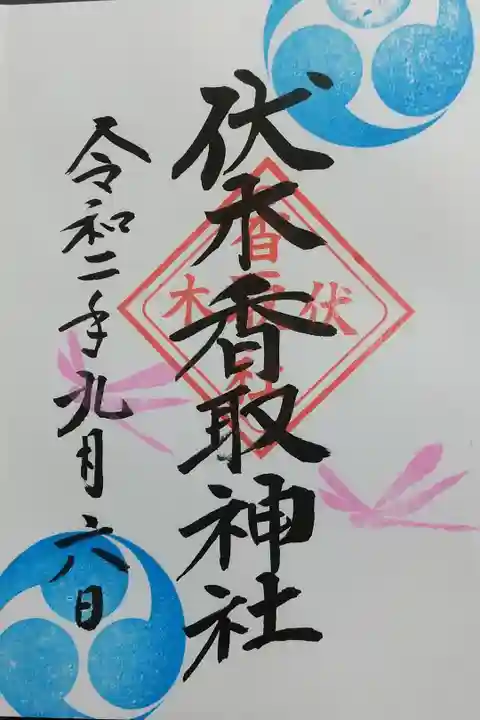 伏木香取神社
令和二年九月六日
伏
木
香取
社